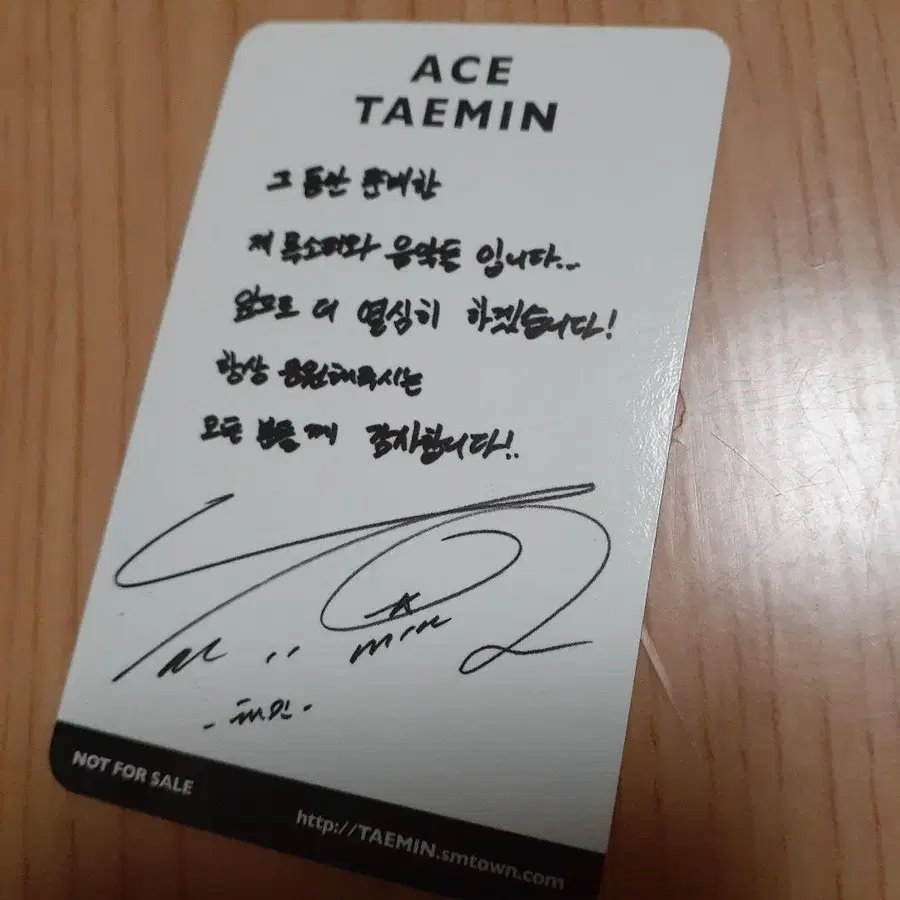 ACE
TAEMIN
그 동안 준비한
제 목소리와 음악들 입니다...
앞으로 더 열심히 하겠습니다!
항상 응원해주시는
모든 분들께 감사합니다!.
Tae min
- 태민 -
NOT FOR SALE
http://TAEMIN.smtown.com